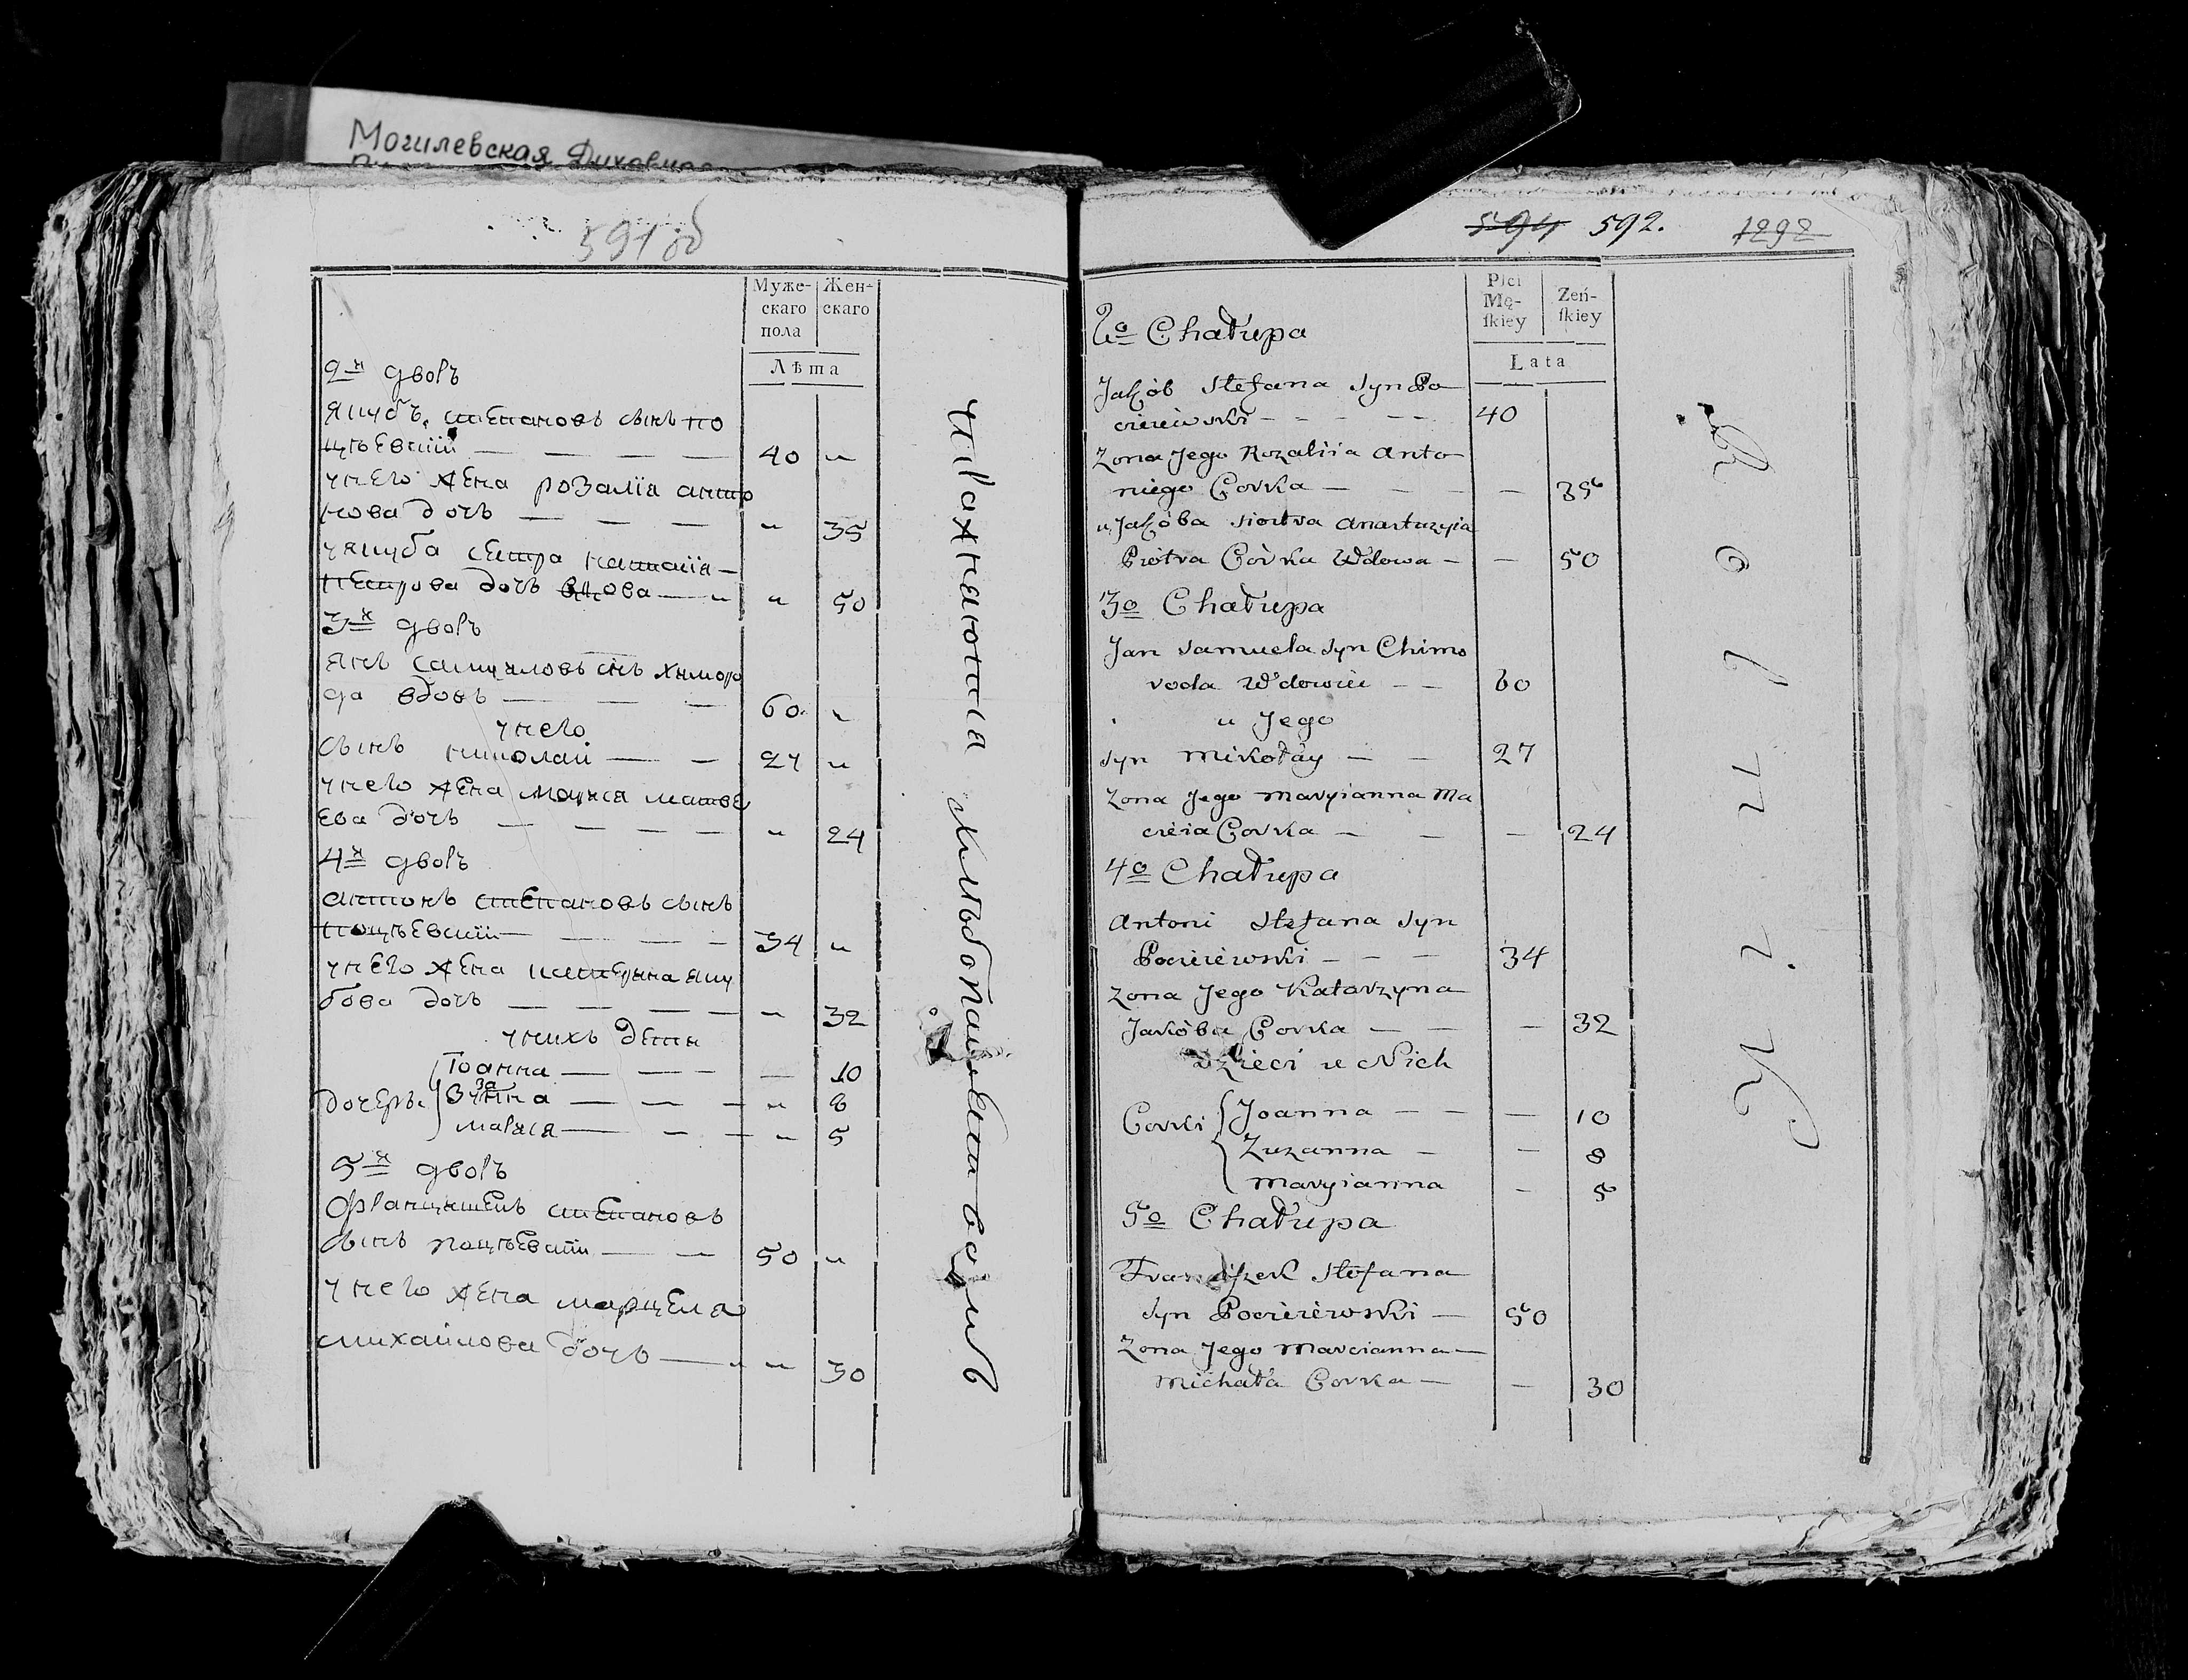 Могилевская Духовная
591 об
Муже-
скаго
пола
Жен-
скаго
Лѣта
2й дворъ
Якубъ степановъ сынъ по
цѣевскій — — — — 40 "
у него жена розалія анто
нова дочь — — — " 35
у якуба сестра
петрова дочь вдова — " " 50
3й дворъ
янъ самуаловъ снъ химоро
да вдовъ — — — 60 "
у него
сынъ николай — — 27 "
у него жена марыя матвѣ
ева дочь — — — — " 24
4й дворъ
антонъ степановъ сынъ
поцѣевскій — — — — 34 "
у него жена катерына яку
бова дочь — — — — " 32
у нихъ дети
Іоанна — — — — 10
дочеры зузанна — — — " 8
марыя — — — " 5
5й дворъ
францишекъ степановъ
сынъ поцѣевскій — — 50 "
у него жена марцела
михайлова дочь — " " 30
594 592. 1292
Płci
Mę-
skiey
Zeń-
skiey
Lata
2o Chałupa
Jakób Stefana syn Po
cieiewski - - - - - 40
Zona Jego Rozaliia Anto
niego Corka — — — — 35
u Jakóba siostra Anastazyia
Piotra Córka Wdowa — — 50
3o Chałupa
Jan Samuela syn Chimo
roda Wdowiec — — 60
u Jego
syn Mikołay — — 27
Zona Jego Maryianna Ma
cieia Corka — — — 24
4o Chałupa
Antoni Stefana syn
Pocieiewski — — — 34
Zona Jego Katarzyna
Jakóba Corka — — — 32
Dzieci u Nich
Corki Joanna — — — 10
Zuzanna — — 8
Maryianna - 5
5o Chałupa
Franciszek Stefana
syn Pocieiewski — 50
Zona Jego Marcianna —
Michała Corka — — 30